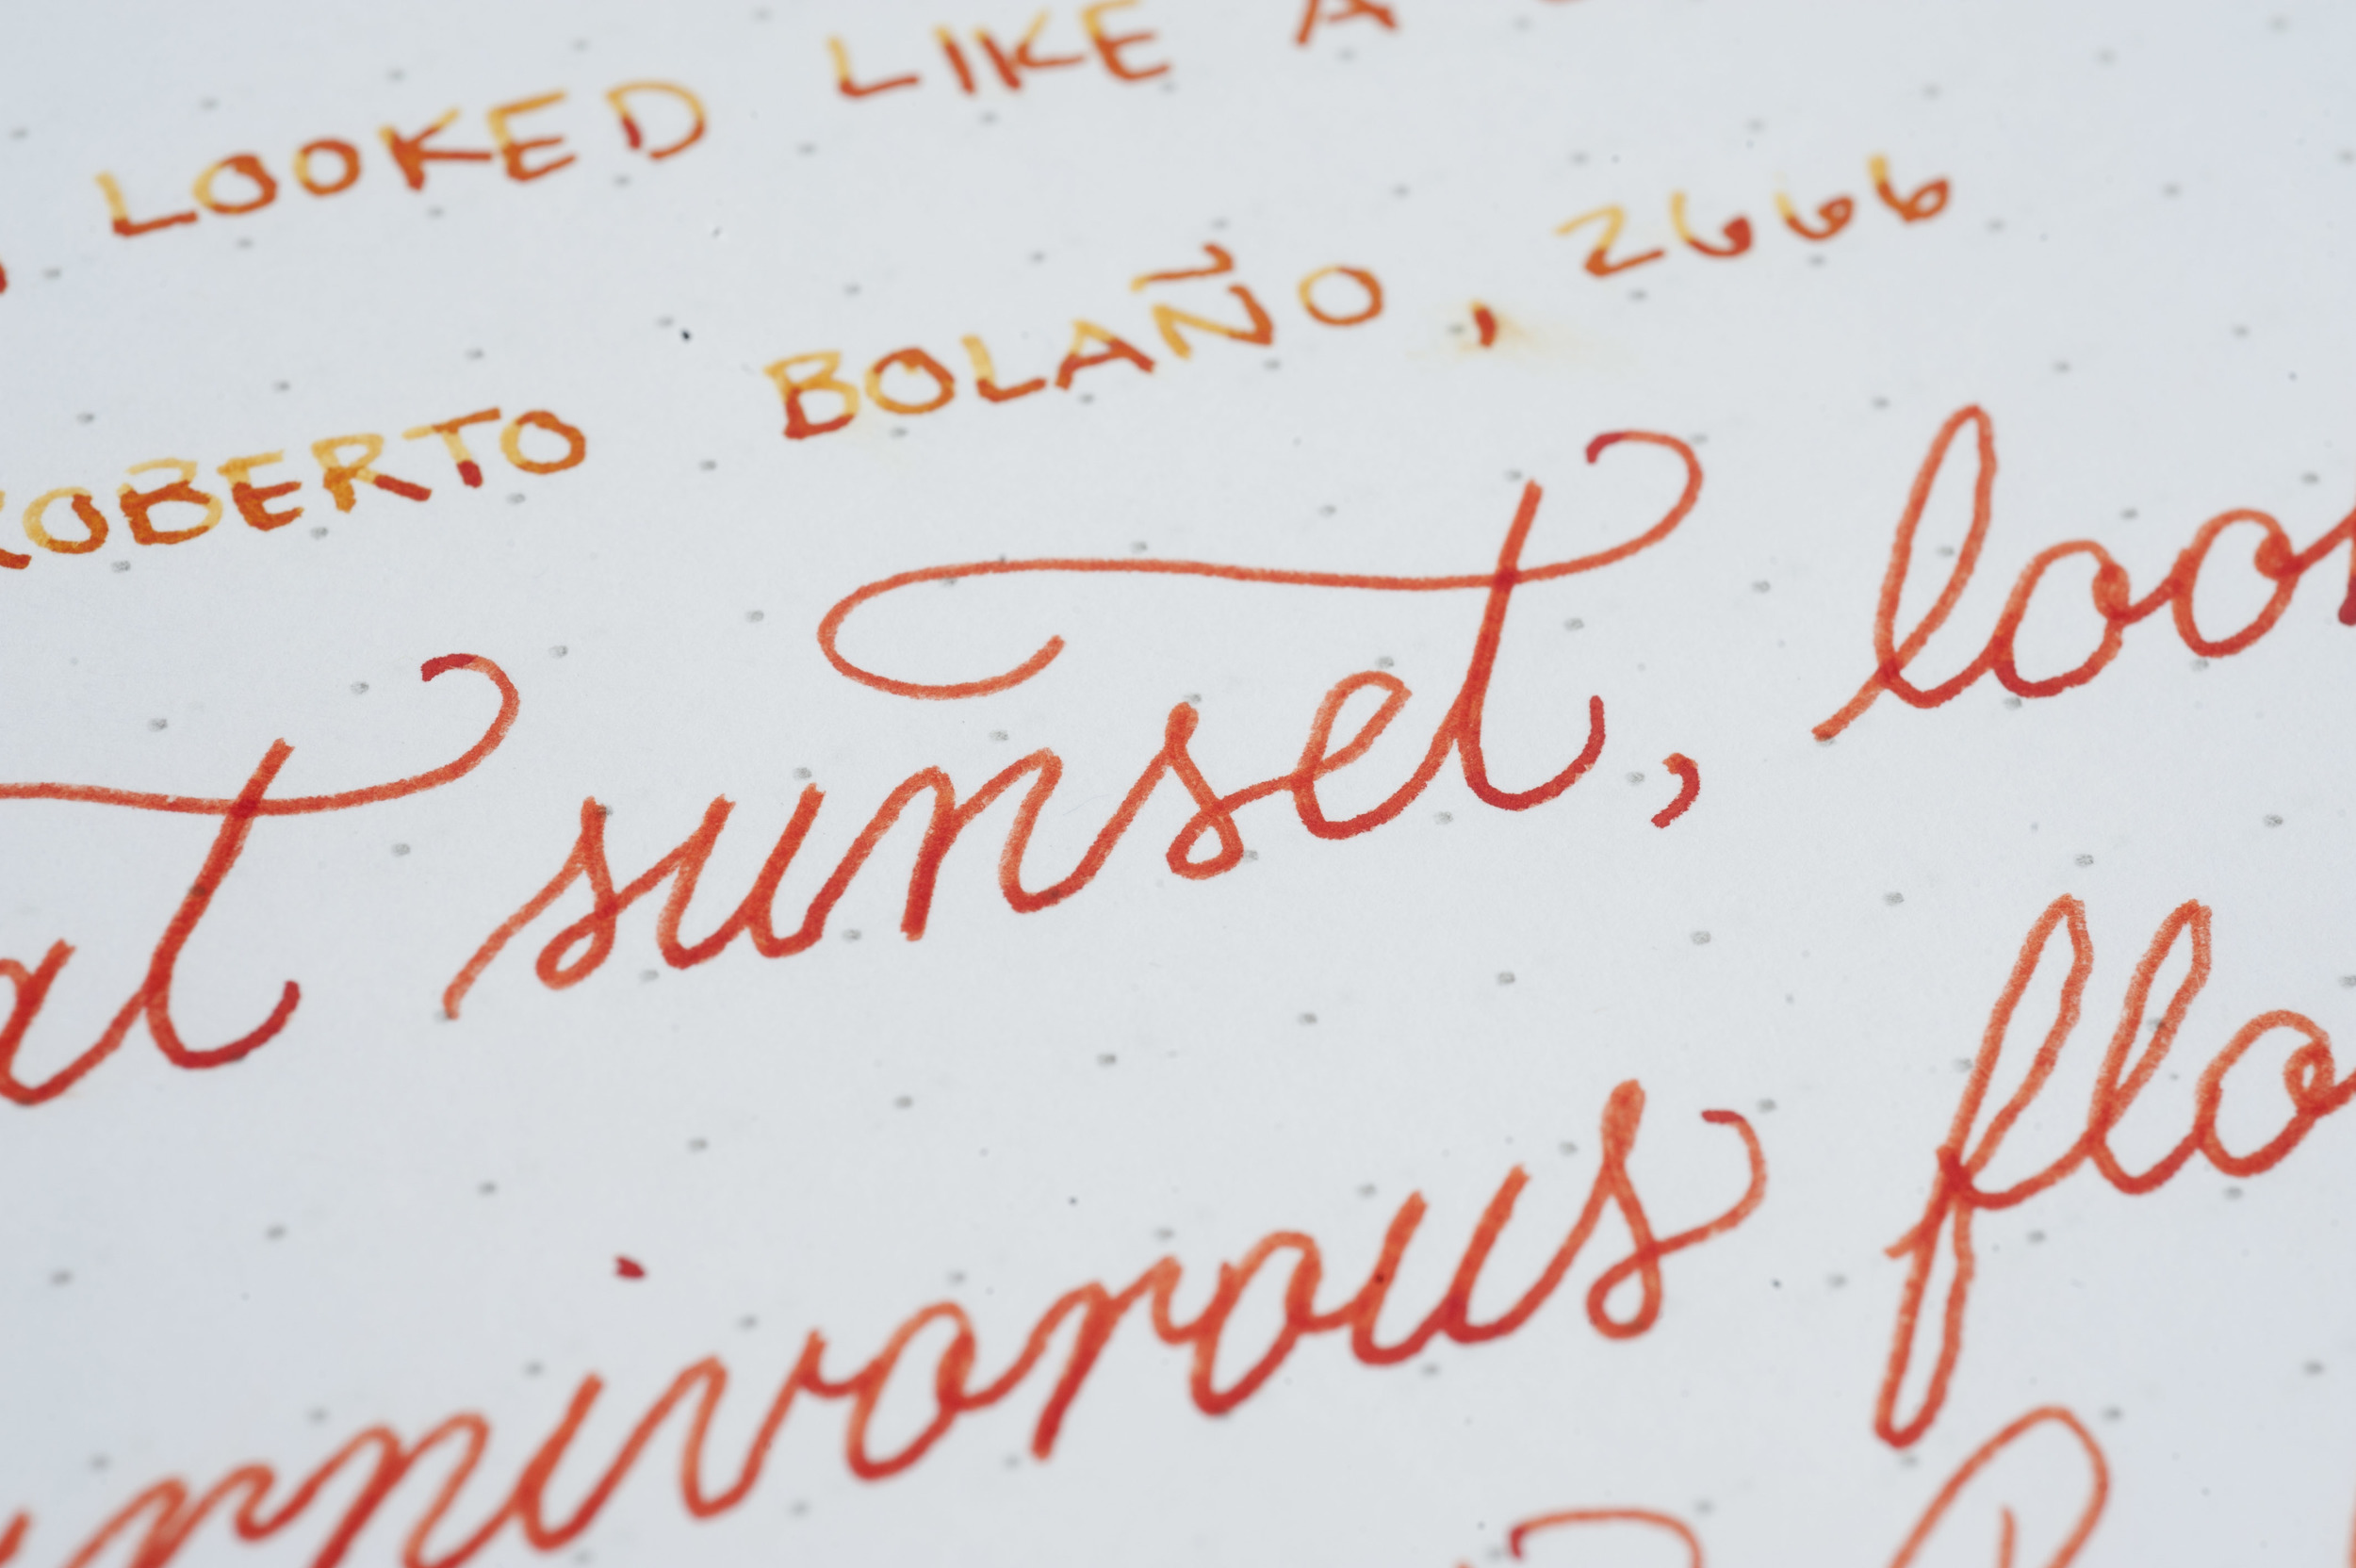 LOOKED LIKE A
ROBERTO BOLAÑO, 2666
at sunset, look
carnivorous flo